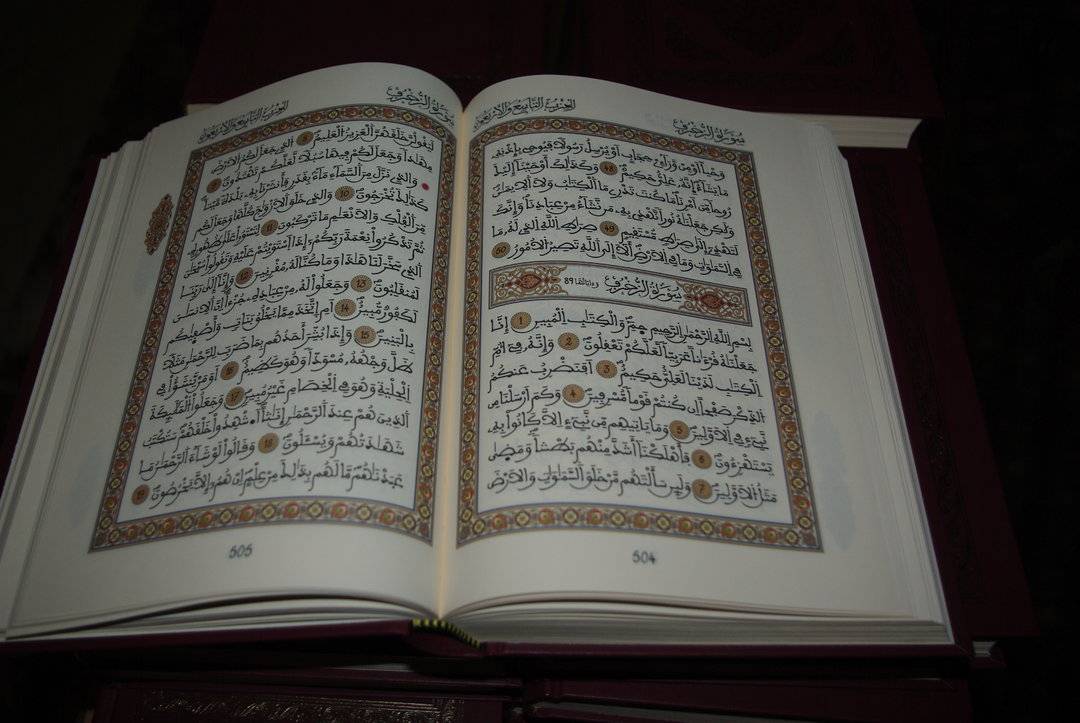 سورة الزخرف
الحزب التاسع والاربعون
وحيا او من وراءي حجاب او يرسل رسولا فيوحي بإذنه
ما يشاء انه علي حكيم 48 وكذالك أوحينا إليك
روحا من امرنا ما كنت تدري ما الكتاب ولا الايمان
ولكن جعلناه نورا نهدي به من نشاء من عبادنا وإنك
لتهدي إلى صراط مستقيم 49 صراط الله الذي له ما
في السماوات وما في الارض ألا إلى الله تصير الامور 50
سورة الزخرف وءاياتها 89
بسم الله الرحمن الرحيم حم والكتاب المبين 1 إنا
جعلناه قرءانا عربيا لعلكم تعقلون 2 وإنه في أم
الكتاب لدينا لعلي حكيم 3 أفنضرب عنكم
الذكر صفحا ان كنتم قوما مسرفين 4 وكم ارسلنا من
نبيء في الاولين 5 وما ياتيهم من نبيء الا كانوا به
يستهزءون 6 فأهلكنا أشد منهم بطشا ومضى
مثل الاولين 7 ولئن سألتهم من خلق السماوات والارض
504
سورة الزخرف
الحزب التاسع والاربعون
ليقولن خلقهن العزيز العليم 8 الذي جعل لكم الارض
مهادا وجعل لكم فيها سبلا لعلكم تهتدون 9
والذي نزل من السماء ماء بقدر فأنشرنا به بلدة ميتا
كذالك تخرجون 10 والذي خلق الازواج كلها وجعل لكم
من الفلك والانعام ما تركبون 11 لتستووا على ظهوره
ثم تذكروا نعمة ربكم إذا استويتم عليه وتقولوا سبحان
الذي سخر لنا هاذا وما كنا له مقرنين 12 وإنا إلى ربنا
لمنقلبون 13 وجعلوا له من عباده جزءا ان الانسان
لكفور مبين 14 ام اتخذ مما يخلق بنات وأصفاكم
بالبنين 15 وإذا بشر أحدهم بما ضرب للرحمان مثلا
ظل وجهه مسودا وهو كظيم 16 أو من ينشؤا في
الحلية وهو في الخصام غير مبين 17 وجعلوا الملائكة
الذين هم عند الرحمان إناثا اشهدوا خلقهم ستكتب
شهادتهم ويسئلون 18 وقالوا لو شاء الرحمان ما
عبدناهم ما لهم بذالك من علم ان هم إلا يخرصون 19
505